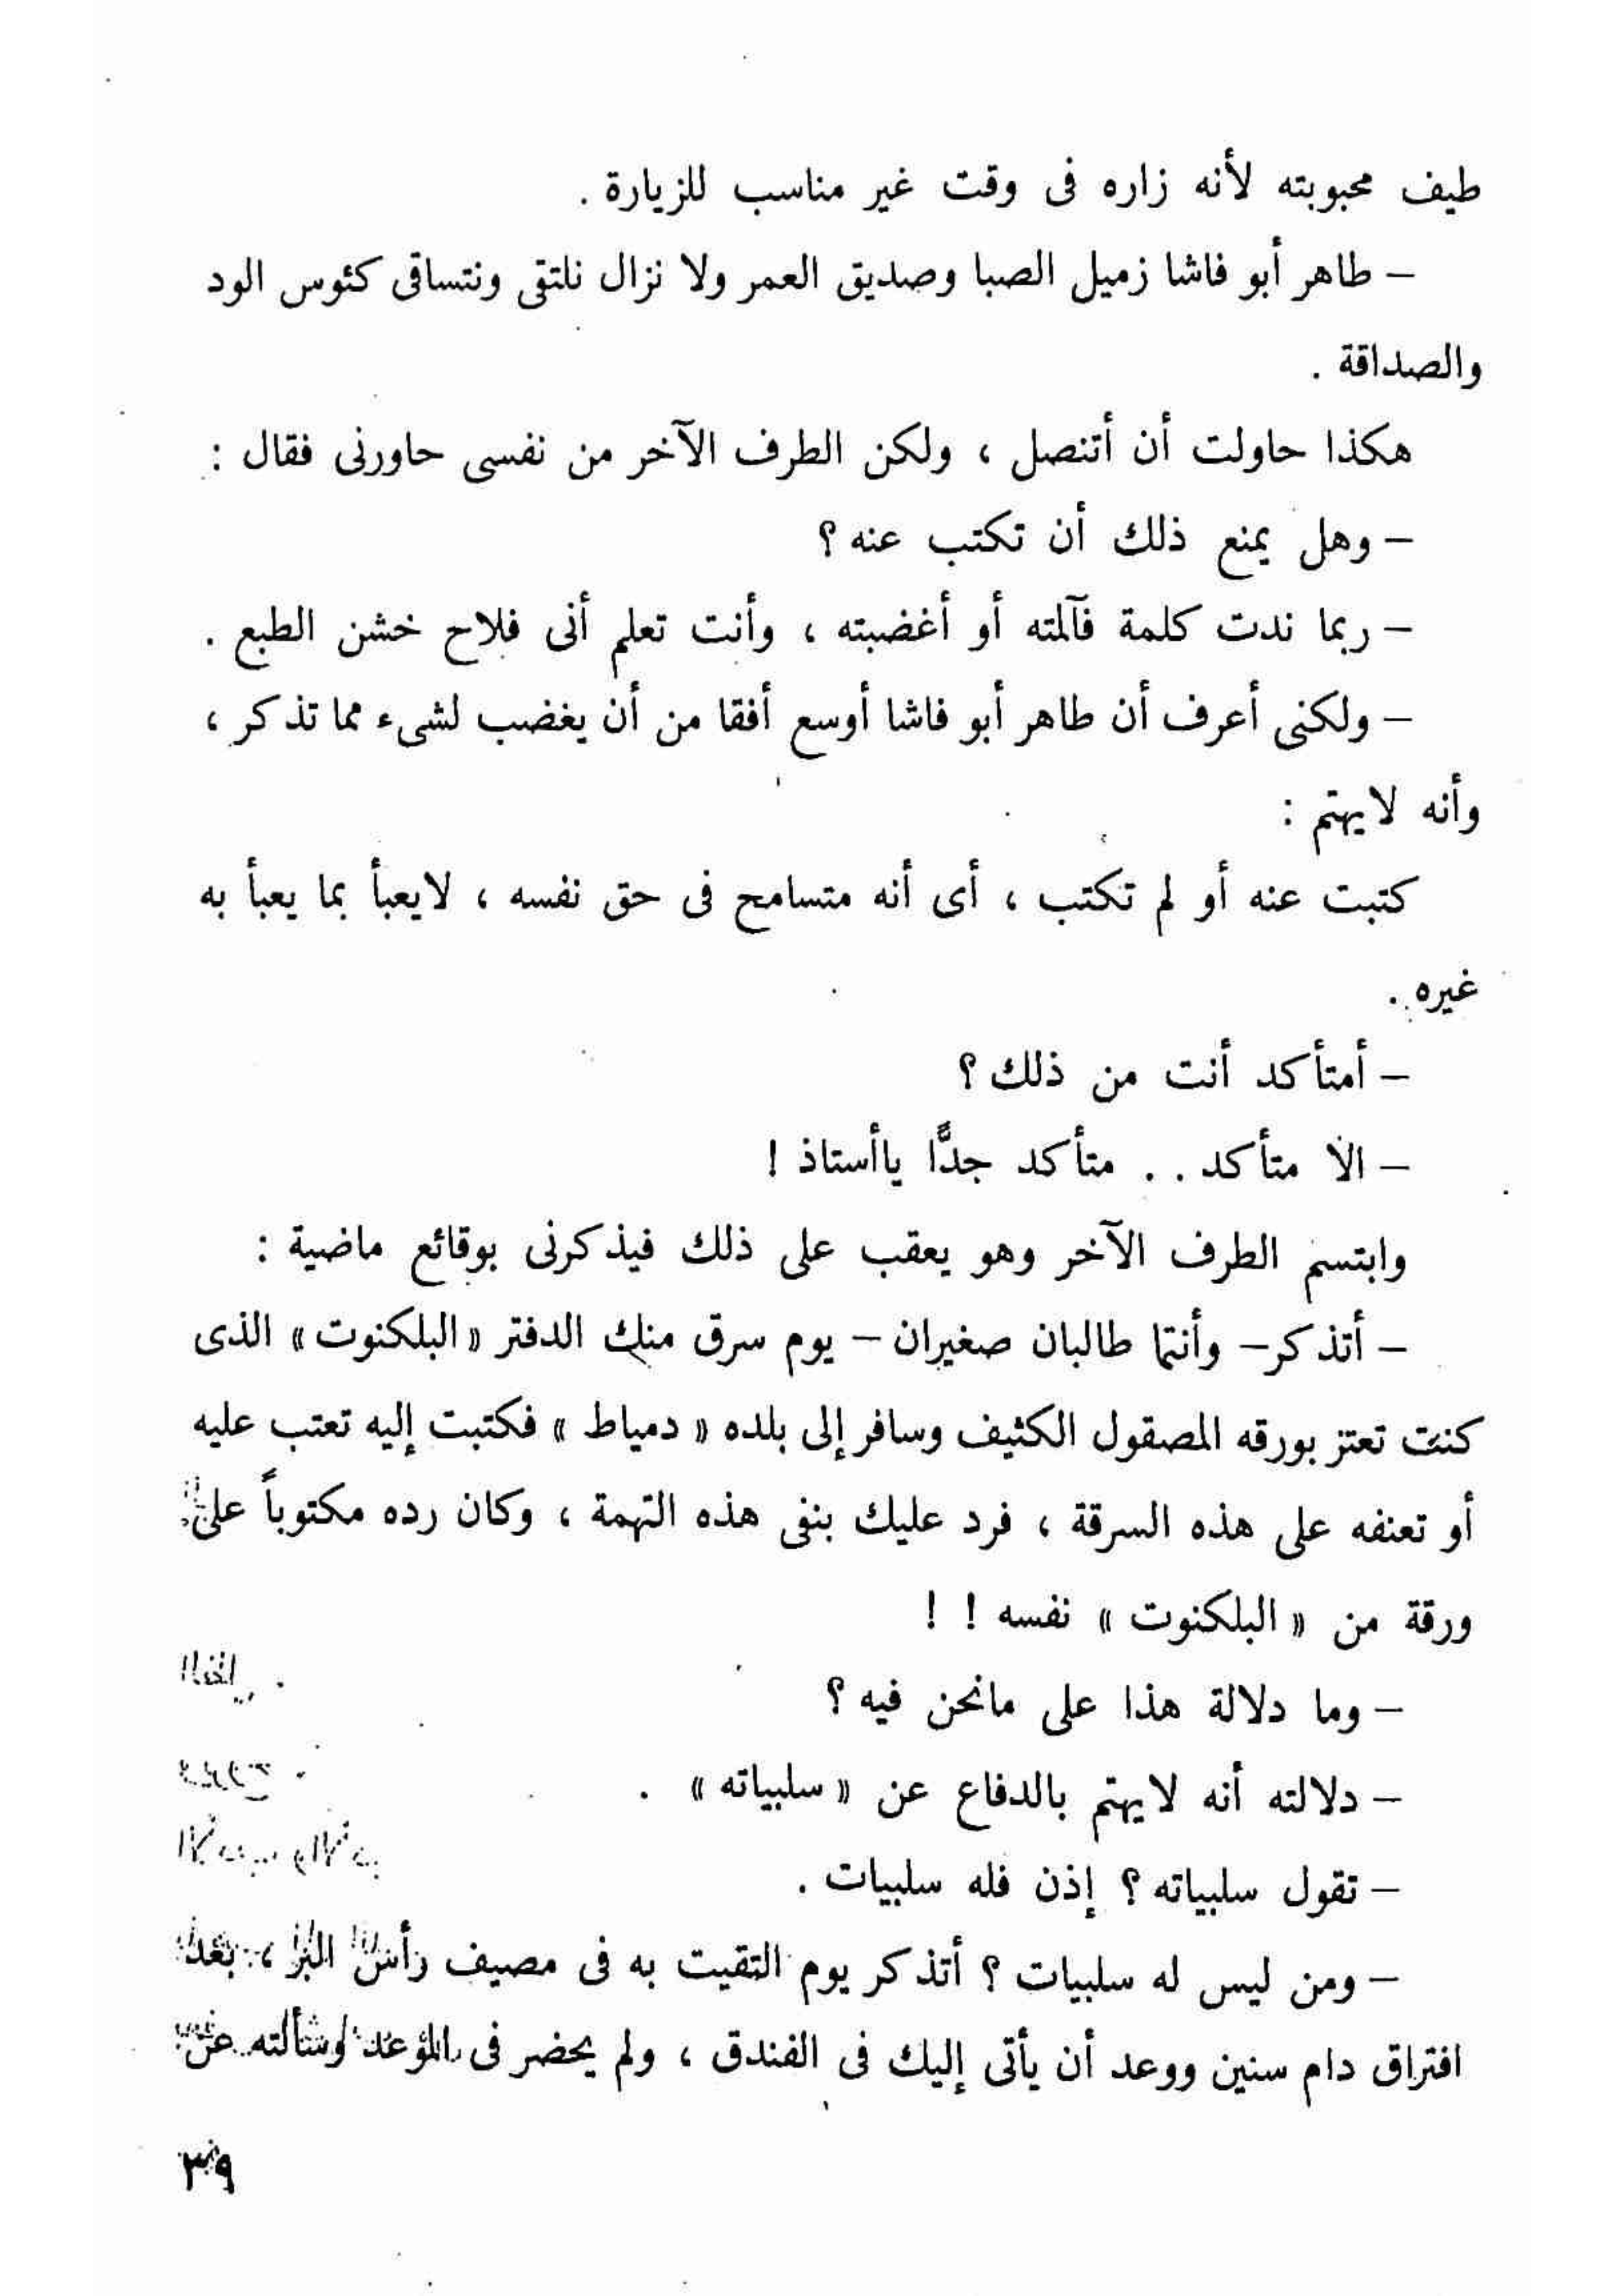 طيف محبوبته لأنه زاره فى وقت غير مناسب للزيارة .
– طاهر أبو فاشا زميل الصبا وصديق العمر ولا نزال نلتقى ونتساقى كئوس الود
والصداقة .
هكذا حاولت أن أتنصل ، ولكن الطرف الآخر من نفسى حاورنى فقال :
– وهل يمنع ذلك أن تكتب عنه ؟
– ربما ندت كلمة فآلمته أو أغضبته ، وأنت تعلم أنى فلاح خشن الطبع .
– ولكنى أعرف أن طاهر أبو فاشا أوسع أفقا من أن يغضب لشىء مما تذكر ،
وأنه لايهتم :
كتبت عنه أو لم تكتب ، أى أنه متسامح فى حق نفسه ، لايعبأ بما يعبأ به
غيره .
– أمتأكد أنت من ذلك ؟
– الا متأكد . . متأكد جدًّا ياأستاذ !
وابتسم الطرف الآخر وهو يعقب على ذلك فيذكرنى بوقائع ماضية :
– أتذكر – وأنتما طالبان صغيران – يوم سرق منك الدفتر « البلكنوت » الذى
كنت تعتز بورقه المصقول الكثيف وسافر إلى بلده « دمياط » فكتبت إليه تعتب عليه
أو تعنفه على هذه السرقة ، فرد عليك بنفى هذه التهمة ، وكان رده مكتوباً على
ورقة من « البلكنوت » نفسه ! !
– وما دلالة هذا على مانحن فيه ؟
– دلالته أنه لايهتم بالدفاع عن « سلبياته » .
– تقول سلبياته ؟ إذن فله سلبيات .
– ومن ليس له سلبيات ؟ أتذكر يوم التقيت به فى مصيف رأس البر ، بعد
افتراق دام سنين ووعد أن يأتى إليك فى الفندق ، ولم يحضر فى الموعد وسألته عن
٣٩